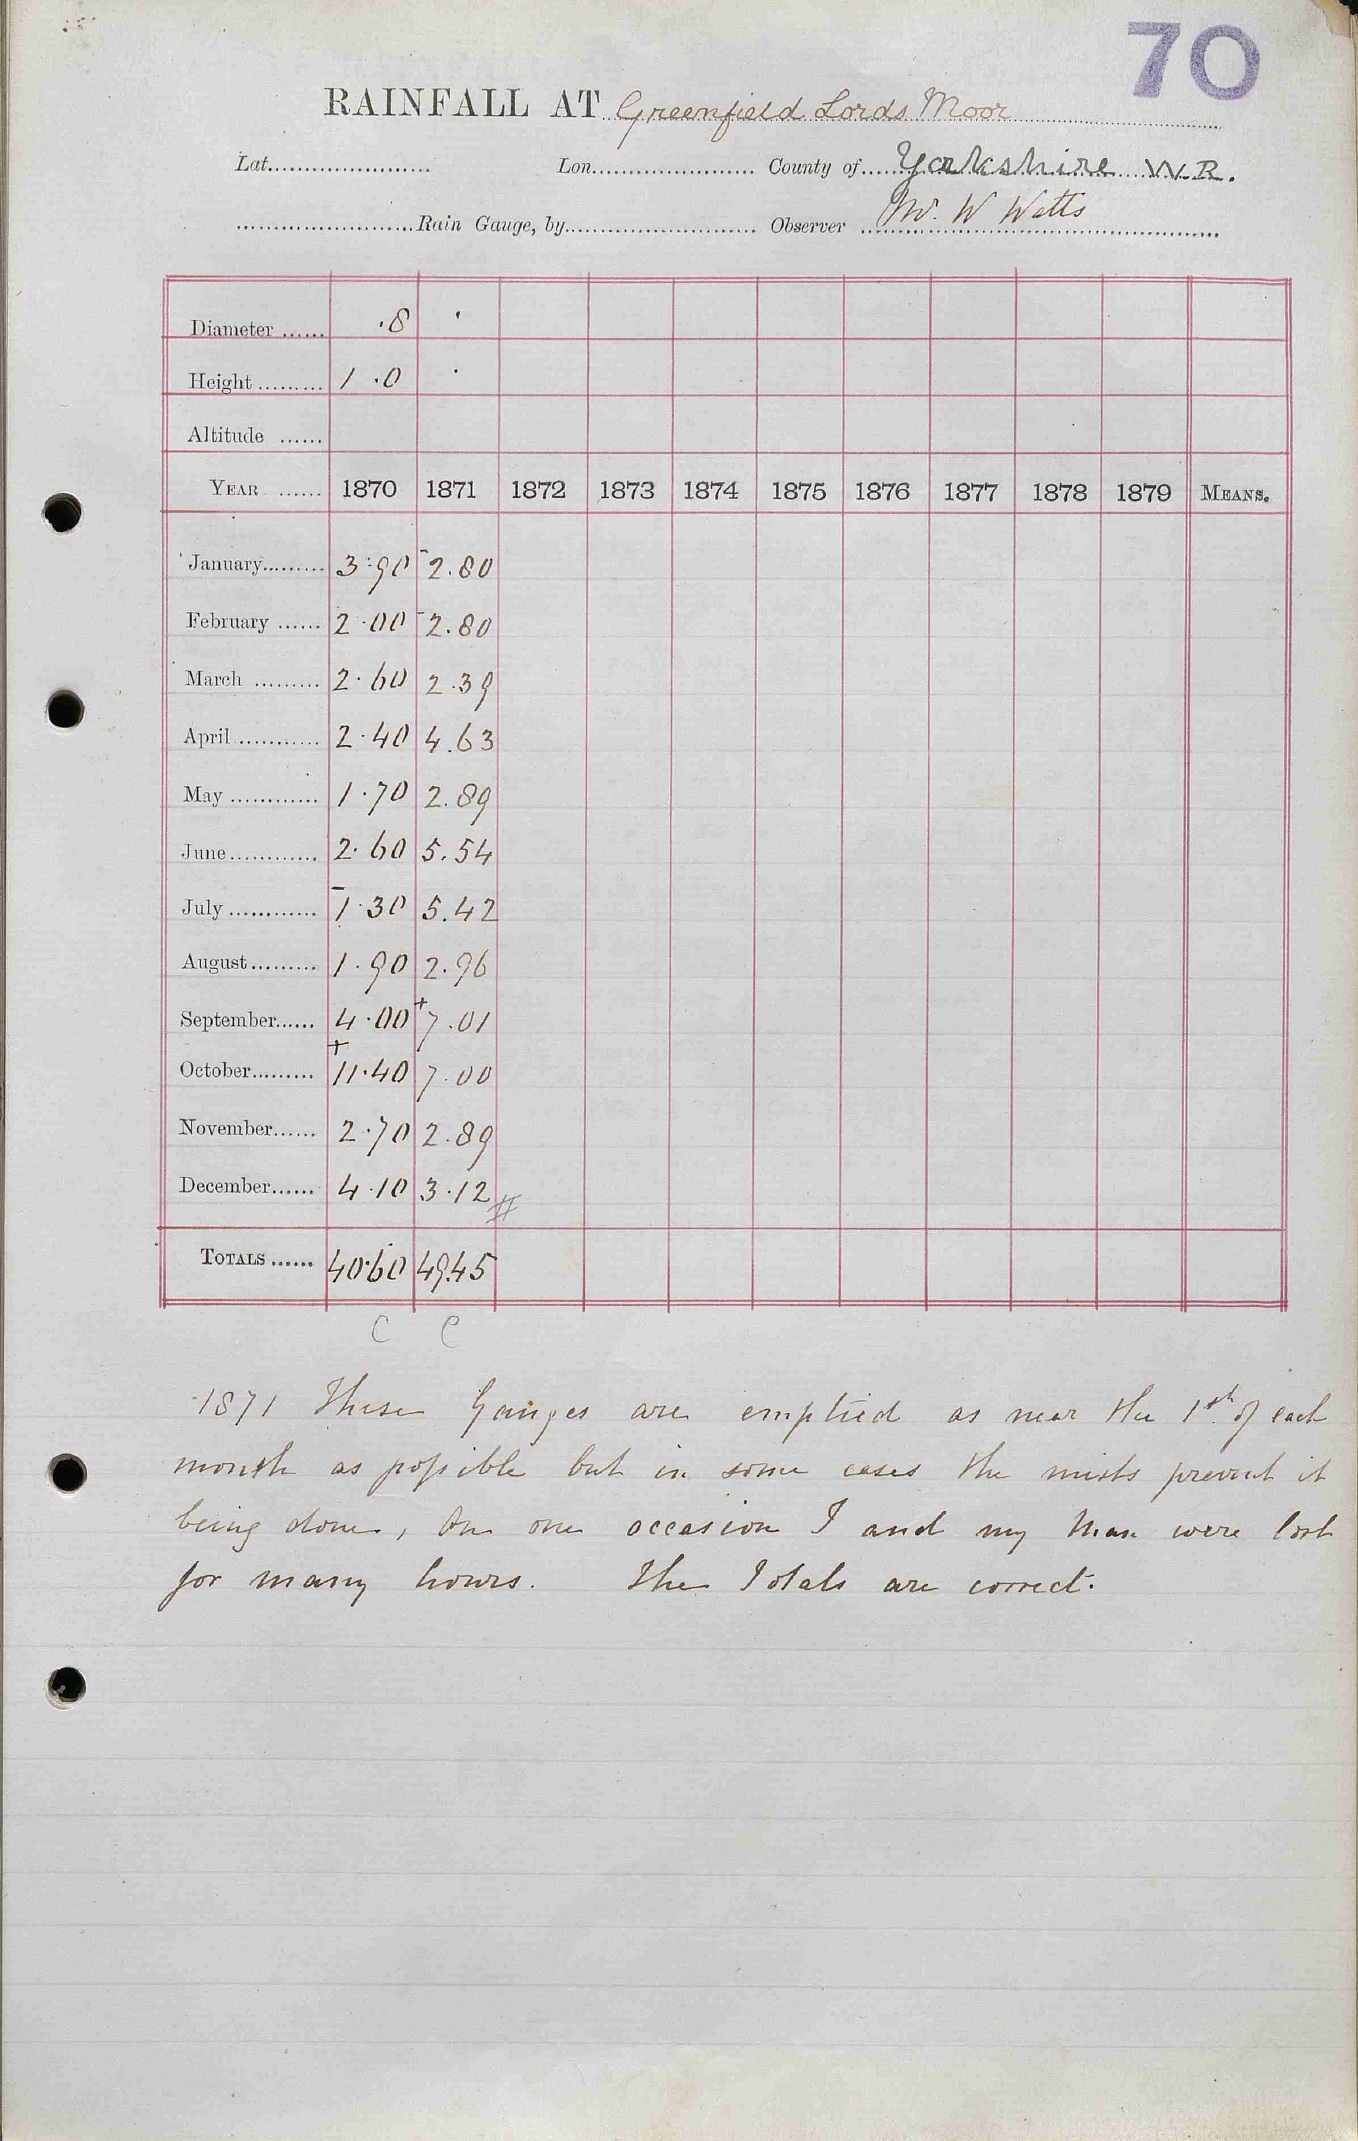 70
RAINFALL AT Greenfield Lords Moor
Lat.................... Lon.................... County of Yorkshire W.R.
....................Rain Gauge, by.................... Observer Mr. W Watts
Diameter ...... .8 .
Height ......... 1 .0 .
Altitude ......
YEAR ...... 1870 1871 1872 1873 1874 1875 1876 1877 1878 1879 MEANS.
January......... 3.90 - 2.80
February ...... 2.00 - 2.80
March ......... 2.60 2.39
April ............ 2.40 4.63
May ............ 1.70 2.89
June............ 2.60 5.54
July ............ - 1.30 5.42
August......... 1.90 2.96
September...... 4.00 + 7.01
October......... + 11.40 7.00
November...... 2.70 2.89
December...... 4.10 3.12 #
TOTALS ...... 40.60 49.45
C C
1871 These Gauges are emptied as near the 1st of each
month as possible but in some cases the mists prevent it
being done, On one occasion I and my Man were lost
for many hours. The Totals are correct.